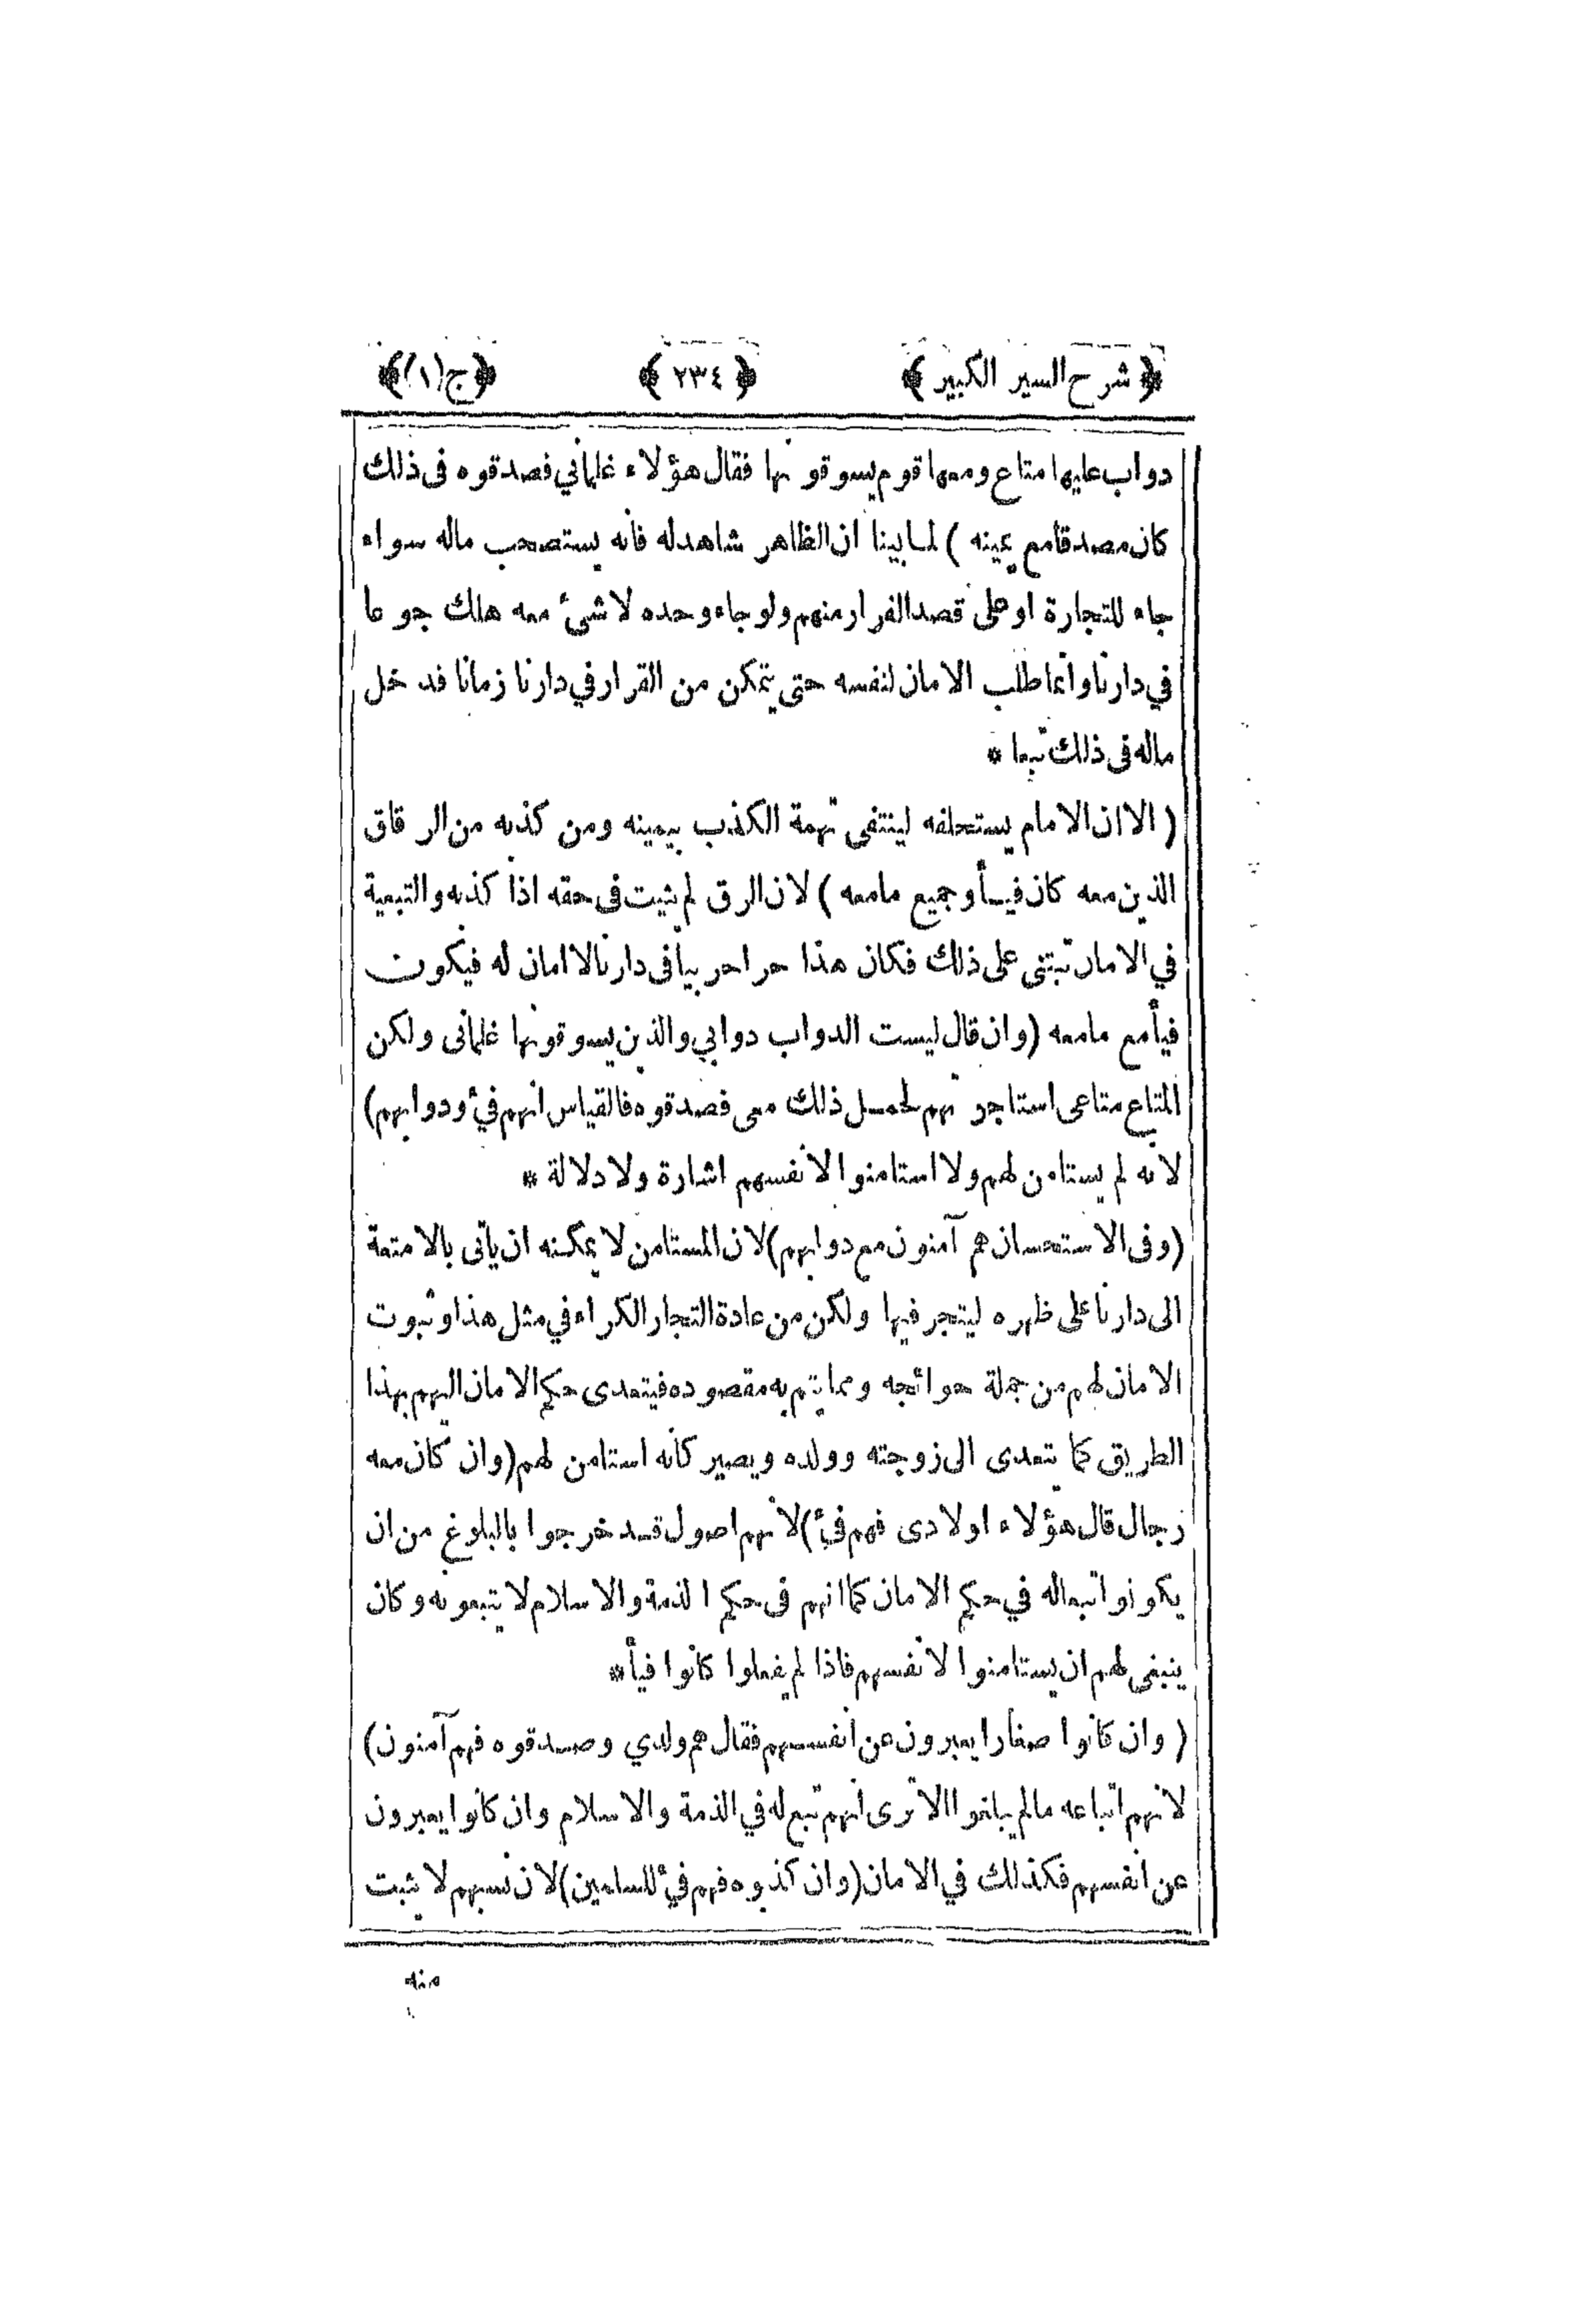 ﴿ شرح السير الكبير ﴾ ﴿ ٢٣٤ ﴾ ﴿ج(١)﴾
دواب عليها متاع ومعها قوم يسوقونها فقال هؤلاء غلماني فصدقوه فى ذلك
كان مصدقا مع يمينه ) لما بينا ان الظاهر شاهد له فانه يستصحب ماله سواء
جاء للتجارة او على قصد الفرار منهم ولو جاء وحده لا شئ معه هلك جوعا
في دارنا وانما طلب الامان لنفسه حتى يتمكن من القرار في دارنا زمانا فدخل
ماله فى ذلك تبعا *
( الا ان الامام يستحلفه لينتفى تهمة الكذب بيمينه ومن كذبه من الرقاق
الذين معه كان فيـأ وجميع مامعه ) لان الرق لم يثبت فى حقه اذا كذبه والتبعية
في الامان تبتنى على ذلك فكان هذا حرا حربيا فى دارنا لا امان له فيكون
فيأ مع مامعه (وان قال ليست الدواب دوابي والذين يسوقونها غلمانى ولكن
المتاع متاعى استاجرتهم لحمل ذلك معى فصدقوه فالقياس انهم فئ ودوابهم)
لانه لم يستامن لهم ولا استامنوا لانفسهم اشارة ولا دلالة *
(وفى الاستحسان هم آمنون مع دوابهم) لان المستامن لا يمكنه ان يأتى بالامتعة
الى دارنا على ظهره ليتجر فيها ولكن من عادة التجار الكراء في مثل هذا وثبوت
الامان لهم من جملة حوائجه ومما يتم به مقصوده فيتعدى حكم الامان اليهم بهذا
الطريق كما تعدى الى زوجته وولده ويصير كانه استامن لهم (وان كان معه
رجال قال هؤلاء اولادى فهم فئ) لانهم اصول قد خرجوا بالبلوغ من ان
يكونوا تبعا له في حكم الامان كما انهم فى حكم الذمة والاسلام لا يتبعونه وكان
ينبغى لهم ان يستامنوا لانفسهم فاذا لم يفعلوا كانوا فيأ *
( وان كانوا صغارا يعبرون عن انفسهم فقال هم ولدي وصدقوه فهم آمنون)
لانهم اتباعه مالم يبلغوا الا ترى انهم تبع له في الذمة والاسلام وان كانوا يعبرون
عن انفسهم فكذلك في الامان (وان كذبوه فهم فئ للمسلمين) لان نسبهم لا يثبت
منه